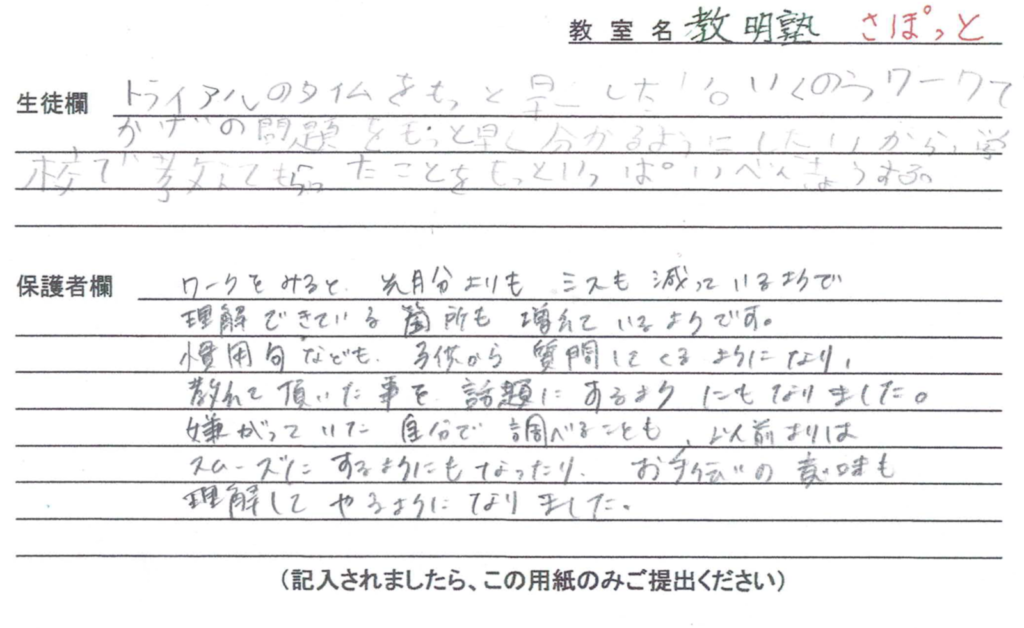 教室名 教明塾 さぽっと
生徒欄 トライアルのタイムをもっと早くしたい。いくのうワークで
かげの問題をもっと早く分かるようにしたいから、学
校で教えてもらったことをもっといっぱいべんきょうする。
保護者欄 ワークをみると、先月分よりも ミスも 減っているようで
理解できている 箇所も 増えているようです。
慣用句なども、子供から 質問してくるようになり、
教えて頂いた事を 話題にあるようにもなりました。
嫌がっていた 自分で 調べることも、以前よりは
スムーズに するようにもなったり、お手伝いの 意味も
理解して やるようになりました。
(記入されましたら、この用紙のみご提出ください)